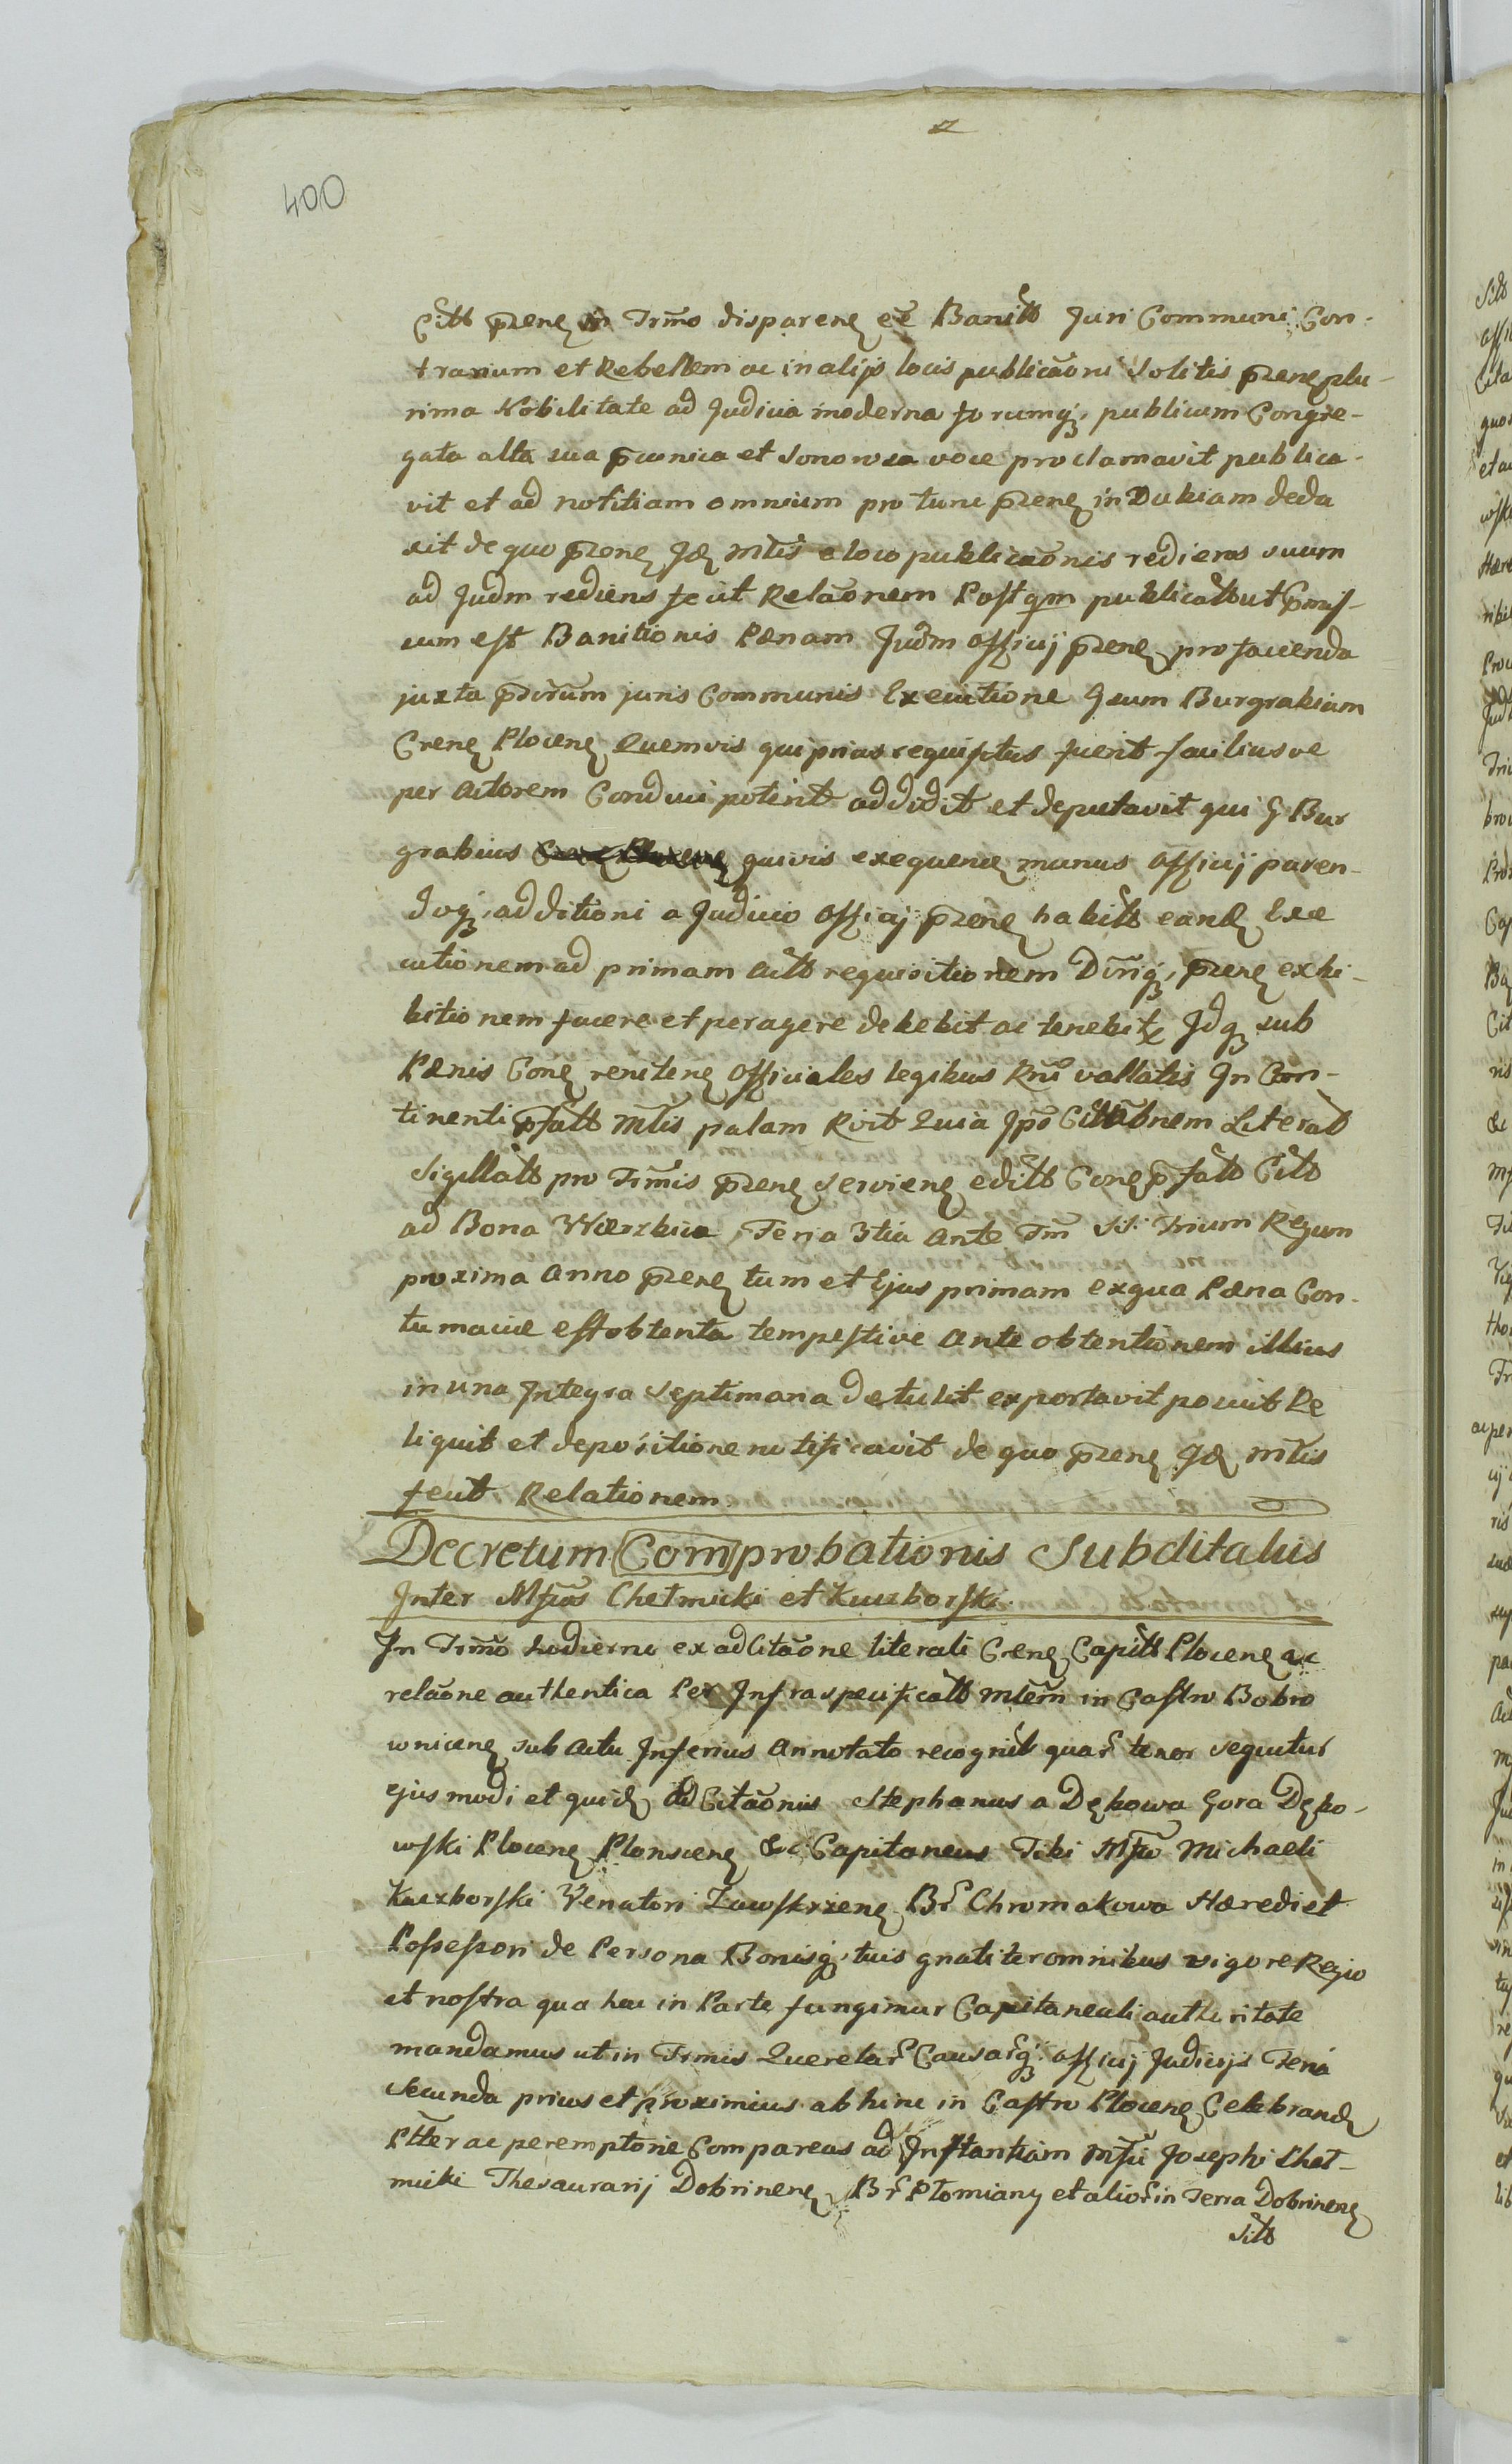 400
Citt pñenę in Trmo disparenę eẽ Banitt Juri Communi Con-
trarium et Rebellem ac in alijs locis publicaõni solitis pñenę plu-
rima Nobilitate ad Judicia moderna forumq, publicum Congre-
gata alta sua pconica et sonorosa voce proclamavit publica-
vit et ad notitiam omnium pro tunc pñenę in Dubiam dedu
xit de quo pñenę Jdę Mtis a loco publicaõnis redieras suum
ad Judm rediens fecit Relaõnem Postqm publicatt ut pmis-
sum est Banitionis Pænam Judm Officij pñenę pro facienda
juxta pscrium juris Communis Executione Gsum Burgrabium
Crenę Plocenę Quemvis qui prius requisitus fuerit faciliusve
per Actorem Conduci poterit addidit et deputavit qui G Bur
grabius quivis exequenę munus Officij paren-
doq, additioni a Judicio Officij pñenę habitt eandę Exe
cutionem ad primam Actt requisitionem Dnriq, pñenę exhi-
bitionem facere et peragere debebit ac tenebitr Jdq sub
Pænis Conę renitenę Officiales legibus Rni vallatis In Con-
tinenti pfatt Mtis palam Rvit Quia Jpõ Cittaõnem Literatt
Sigillatt pro Trmis pñenę servienę editt Conę pfatt Citt
ad Bona Wierzbica Feria 3tia Ante Fm SS. Trium Regum
proxima Anno pñenę tum et Ejus primam ex qua Pæna Con-
tumaciæ est obtenta tempestive Ante obtentionem illius
in una Integra Septimana Detulit exportavit posuit Re
liquit et depositione notificavit de quo pñenę Jdę Mtis
fecit Relationem
Decretum Comprobationis Subditalis
Inter Mfcos Chełmicki et Kuczborski.
In Trmo hodierno ex adCitaõne literali Crenę Capitt Plocenę ac
relaõne authentica Per Infraspecificatt Mtem in Castro Bobro
wnicenę sub Actu Inferius Annotato recognit quar tenor sequitur
ejusmodi et quidę AdCitaõnis Stephanus a Dębowa Gora Dębo-
wski Plocenę Płonscenę &c Capitaneus Tibi Mfco Michaeli
Kuczborski Venatori Zawskrzenę Br Chromakowa Hæredi et
Possessori de Persona Bonisq, tuis gnaliter omnibus vigore Regio
et nostra qua hac in Parte fungimur Capitaneali authoritate
mandamus ut in Trmis Querelar Causarq, Officij Judicijs Feria
Secunda prius et proximius ab hinc in Castro Plocenę Celebrandę
Ptter ac peremptorie Compareas ad Instantiam Mfci Josephi Cheł-
micki Thesaurarij Dobrinenę Br Płomiany et alior in Terra Dobrinenę
Sitt